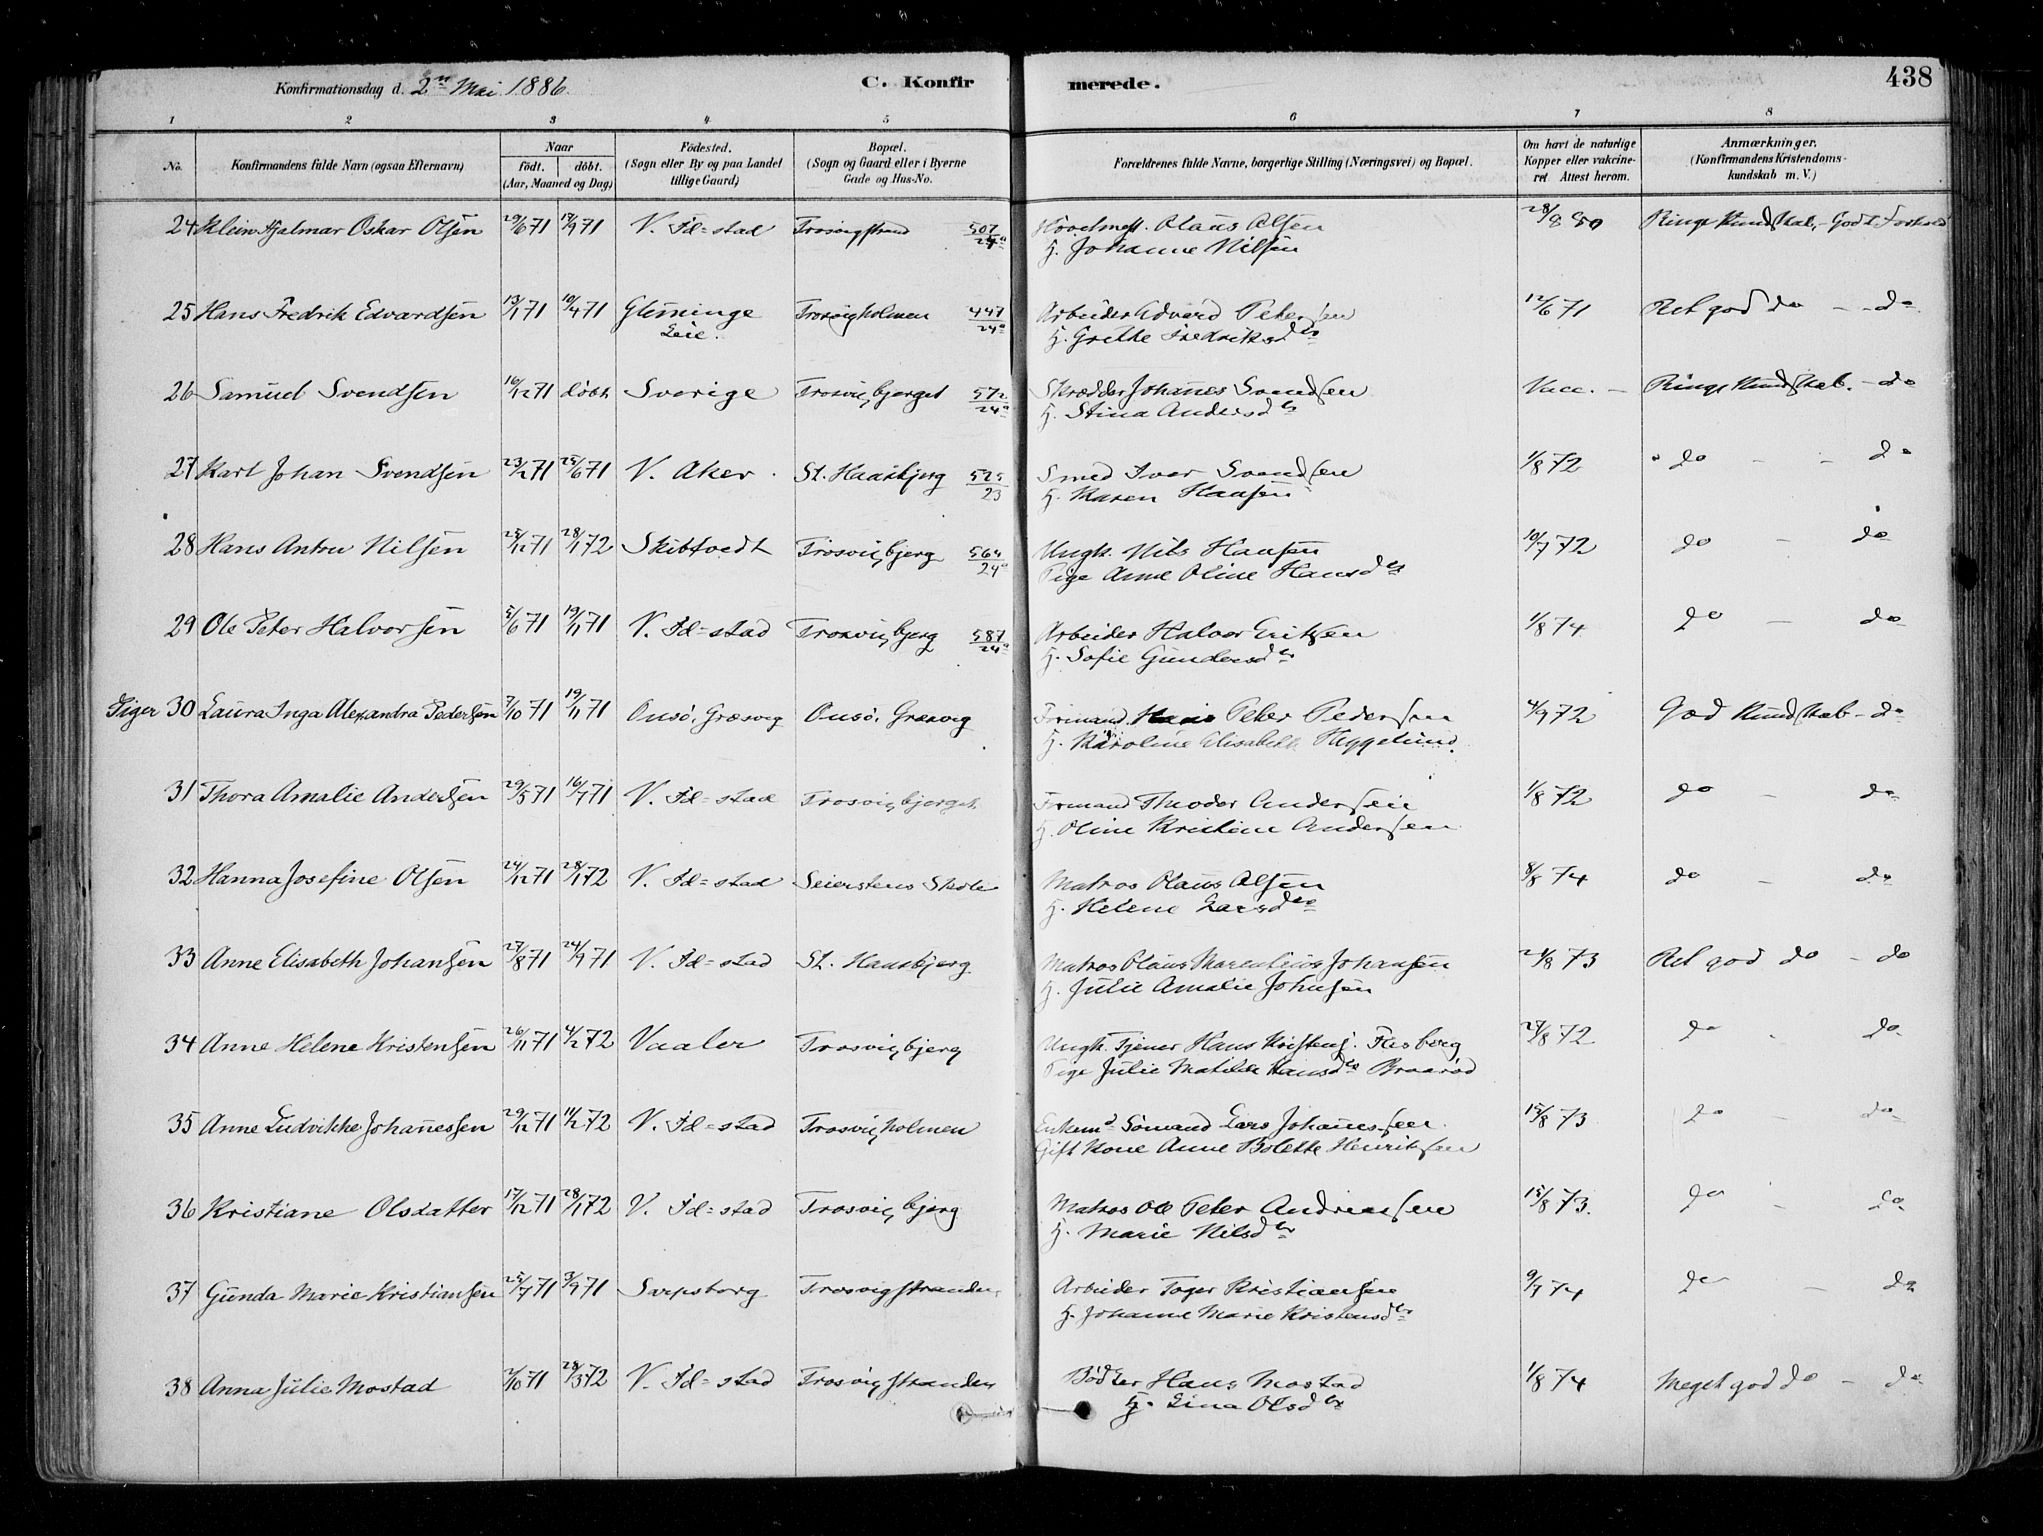 Konfirmationsdag d. 2den Mai 1886.
C. Konfirmerede.
438
1 2 3 4 5 6 7 8
No.
Konfirmandens fulde Navn (ogsaa Efternavn)
Naar
født. døbt.
(Aar, Maaned og Dag)
Fødested.
(Sogn eller By og paa Landet
tillige Gaard)
Bopæl.
(Sogn og Gaard eller i Byerne
Gade og Hus-No.
Forældrenes fulde Navne, borgerlige Stilling (Næringsvei) og Bopæl.
Om havt de naturlige
Kopper eller vakcine-
ret. Attest herom.
Anmærkninger.
(Konfirmandens Kristendoms-
kundskab m. V.)
24 Klein Hjalmar Oskar Olsen 29/6 71 17/9 71 V. Fd=stad Trosvigstrand 507/24a Olaus Olsen 28/8 80 Ringe Kundskab, - Godt Forhold
H. Johanne Nilsen
25 Hans Fredrik Edvardsen 13/1 71 10/4 71 Glemminge Trosvigholmen 447/24a Arbeider Edvard Petersen 12/6 71 Ret god do - do
Leie. H. Grethe Fredriksdtr
26 Samuel Svendsen 16/12 71 døbt Sverige Trosvigbjerget 572/24a Skrædder Johanes Svendsen Vacc. - Ringe Kundskab. - do
H. Stina Andersdtr
27 Karl Johan Svendsen 23/2 71 25/6 71 V. Aker St. Hansbjerg 525/23 Smed Iver Svendsen 1/8 72 do - - do
H. Karen Hansen
28 Hans Anton Nilsen 25/12 71 28/1 72 Skibtvedt Trosvigbjerg 564/24a Ungk. Nils Hansen 10/7 72 do - do
Pige Anne Oline Hansdtr
29 Ole Peter Halvorsen 5/6 71 19/11 71 V. Fd=stad Trosvigbjerg 587/24a Arbeider Halvor Eriksen 1/8 74 do - do
H. Sofie Gundersdtr
Piger 30 Laura Inga Alexandra Pedersen 7/10 71 19/11 71 Onsø, Græsvig Onsø, Græsvig Formand Peter Pedersen 4/9 72 God Kundskab - do
H. Karoline Elisabeth Heggelund.
31 Thora Amalie Andersen 29/5 71 16/7 71 V. Fd=stad Trosvigbjerget Formand Theodor Andersen 1/8 72 do - do
H. Oline Kristine Andersen
32 Hanna Josefine Olsen 24/12 71 28/1 72 V. Fd=stad Seierstens Skole Matros Olaus Olsen 8/8 74 do - do
H. Helene Larsdtr
33 Anne Elisabeth Johansen 27/8 71 24/9 71 V. Fd=stad St. Hansbjerg Matros Olaus Johansen 21/8 73 Ret god do - do
H. Julie Amalie Johnsen
34 Anne Helene Kristensen 26/11 71 4/2 72 Vaaler Trosvigbjerg Ungk. Tjener Hans Kristens. 27/8 72 do - do
Pige Julie Matilde Hansdtr Braarød
35 Anne Ludvikke Johanessen 29/12 71 11/2 72 V. Fd=stad Trosvigholmen Enkemd Sømand Lars Johanessen. 15/8 73 do - do
Gift Kone Anne Bolette Henriksen
36 Kristiane Olsdatter 17/12 71 28/1 72 V. Fd=stad Trosvigbjerg Matros Ole Peter Andreassen 15/8 73. do - do
H. Marie Nilsdtr
37 Gunda Marie Kristiansen 25/7 71 3/9 71 Sarpsborg Trosvigstranden Arbeider Kristiansen 9/7 74 do - do
H. Johanne Marie Kristensdtr
38 Anna Julie Mostad 2/10 71 28/3 72 V. Fd=stad Trosvigstranden Bødker Hans Mostad 1/8 74 Meget god do - do
H. Lina Olsdtr